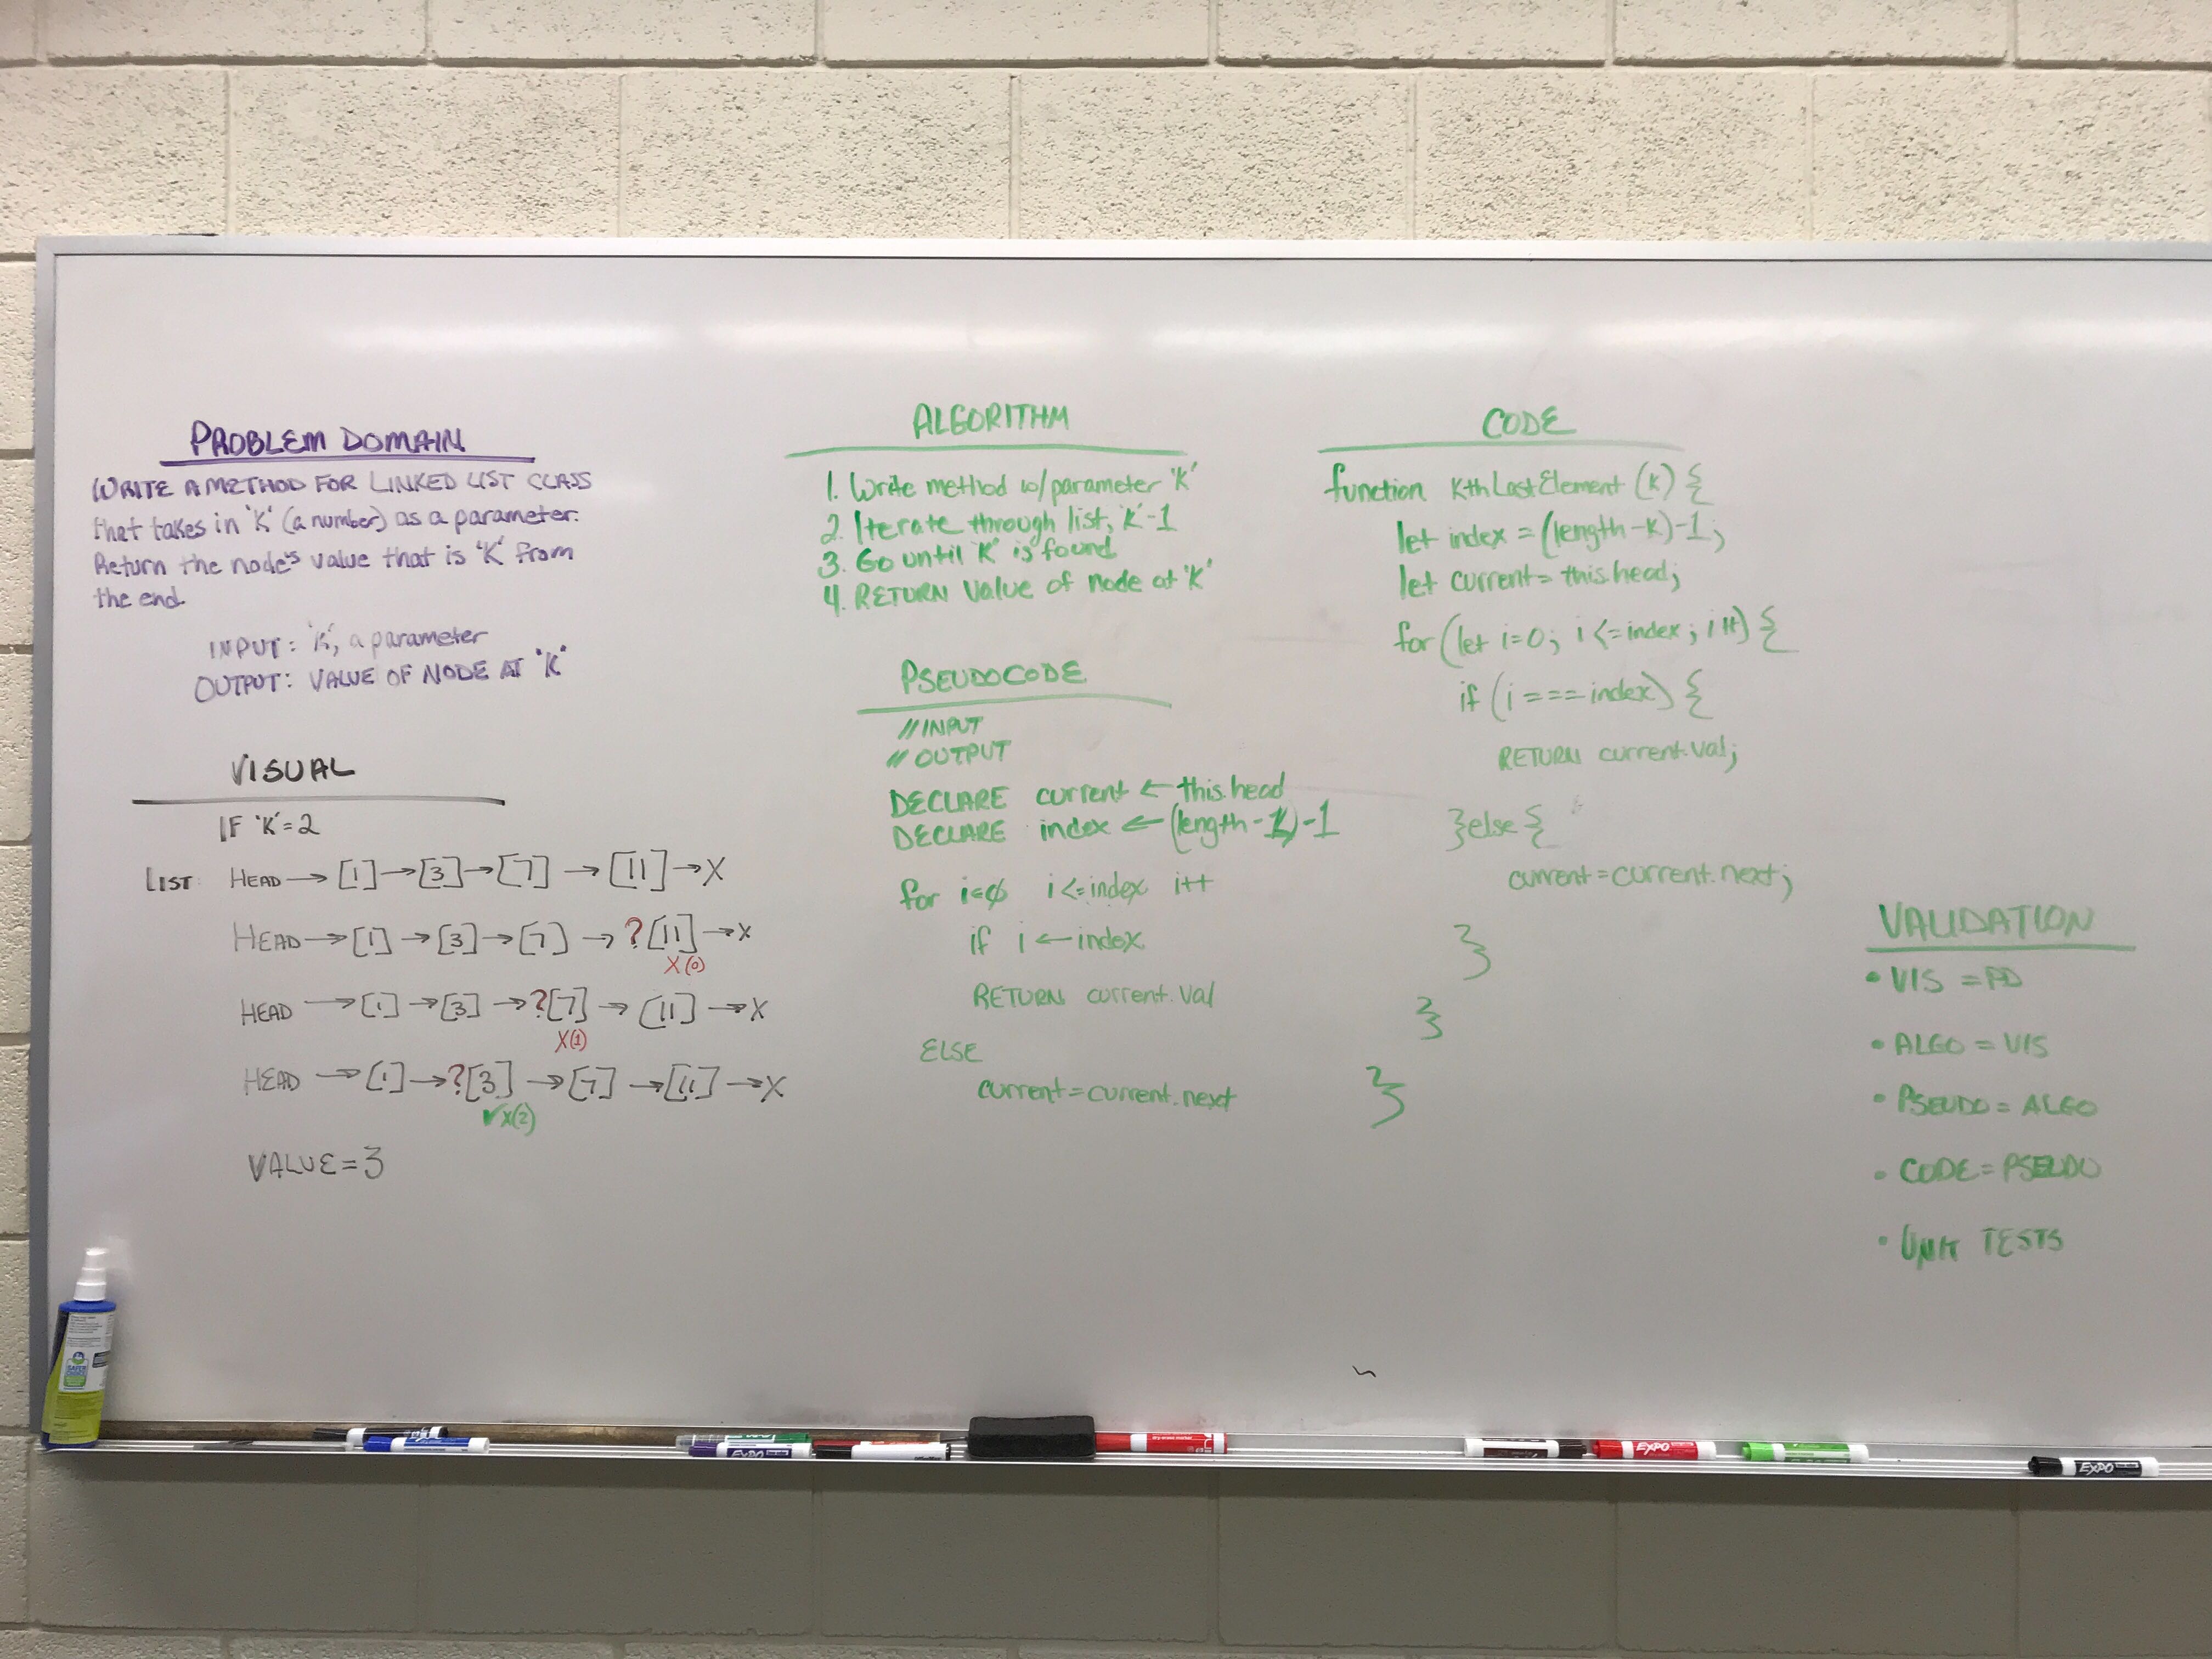 PROBLEM DOMAIN
WRITE A METHOD FOR LINKED LIST CLASS
that takes in 'K' (a number) as a parameter.
Return the node's value that is 'K' from
the end.
INPUT: 'K', a parameter
OUTPUT: VALUE OF NODE AT 'K'
VISUAL
IF 'K'=2
LIST: HEAD → [1] → [3] → [7] → [11] → X
HEAD → [1] → [3] → [7] → ? [11] → X
X(0)
HEAD → [1] → [3] → ? [7] → [11] → X
X(1)
HEAD → [1] → ? [3] → [7] → [11] → X
✓X(2)
VALUE = 3
ALGORITHM
1. Write method w/parameter 'K'
2. Iterate through list, K-1
3. Go until 'K' is found
4. RETURN value of node at 'K'
PSEUDOCODE
// INPUT
// OUTPUT
DECLARE current ← this.head
DECLARE index ← (length - K) - 1
for i=0 i<=index i++
if i ← index
RETURN current.val
ELSE
current = current.next
CODE
function KthLastElement (K) {
let index = (length - K) - 1;
let current = this.head;
for (let i=0; i <= index; i++) {
if (i === index) {
RETURN current.val;
} else {
current = current.next;
}
}
}
VALIDATION
• VIS = PD
• ALGO = VIS
• PSEUDO = ALGO
• CODE = PSEUDO
• UNIT TESTS
EXPO
EXPO
EXPO